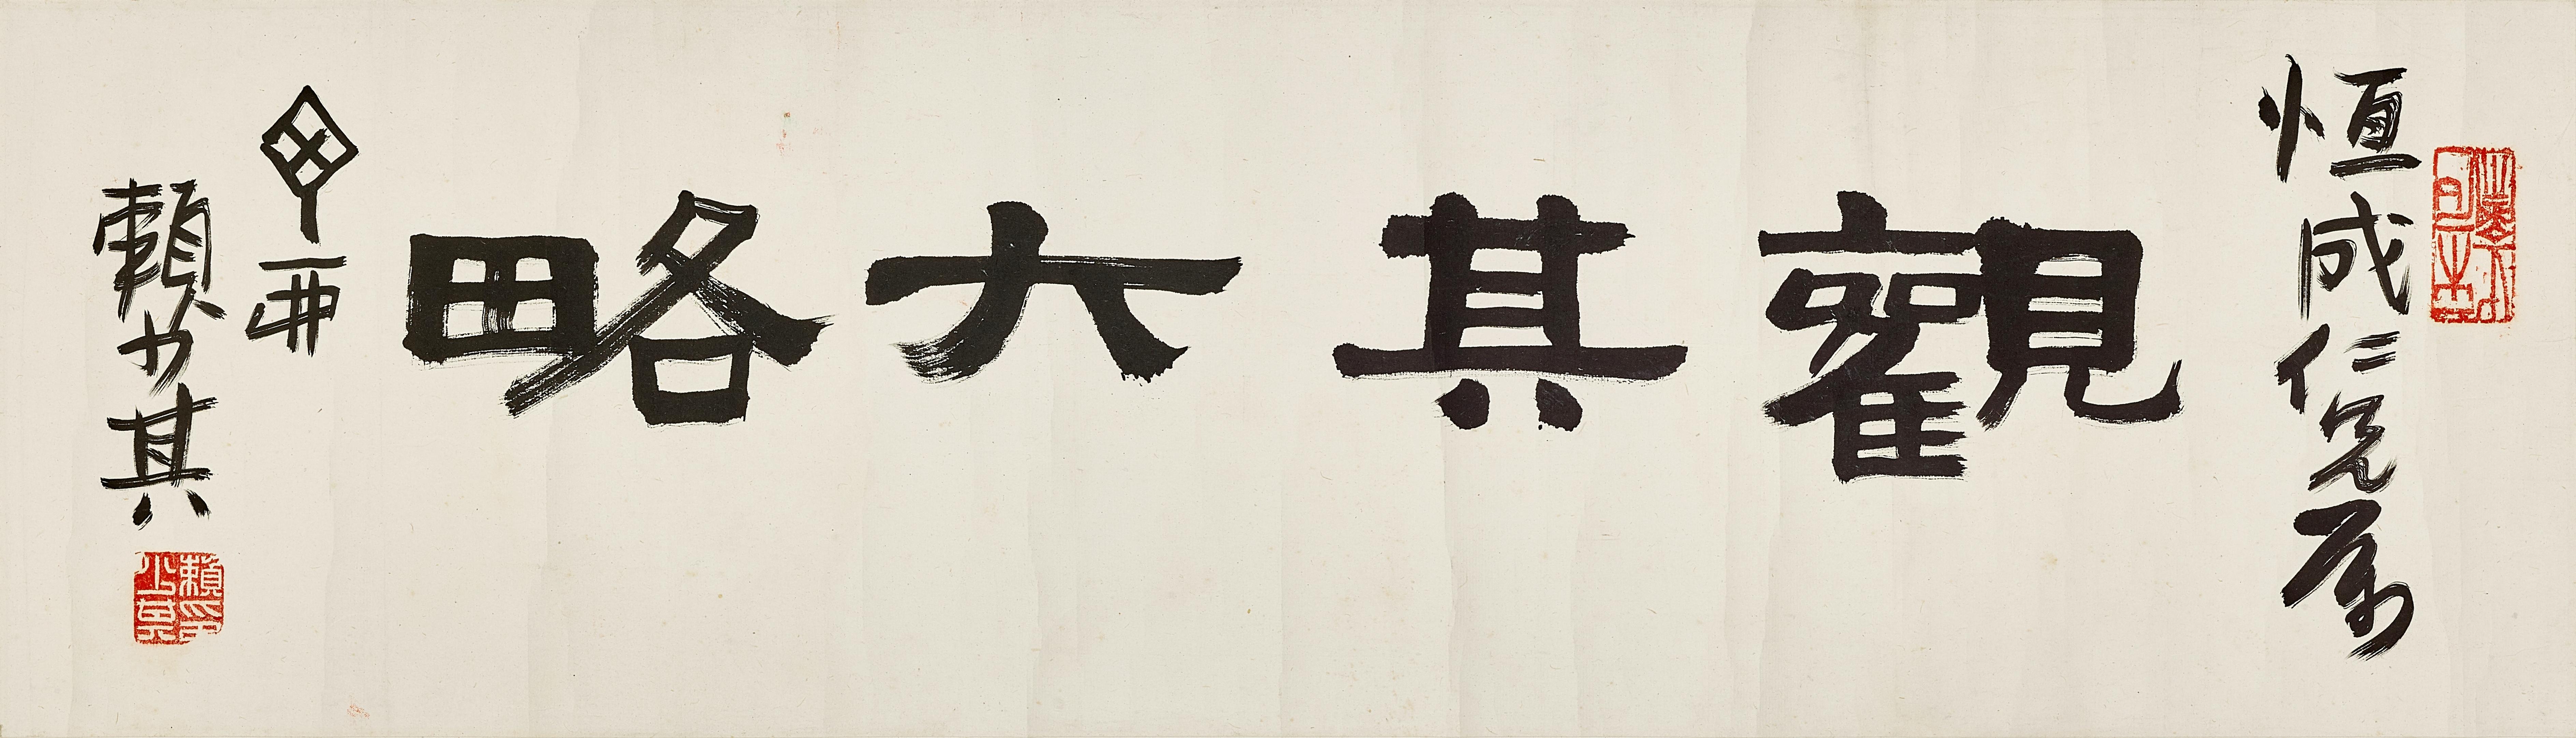 恒成仁兄屬
觀其大略
賴少其
賴印少其